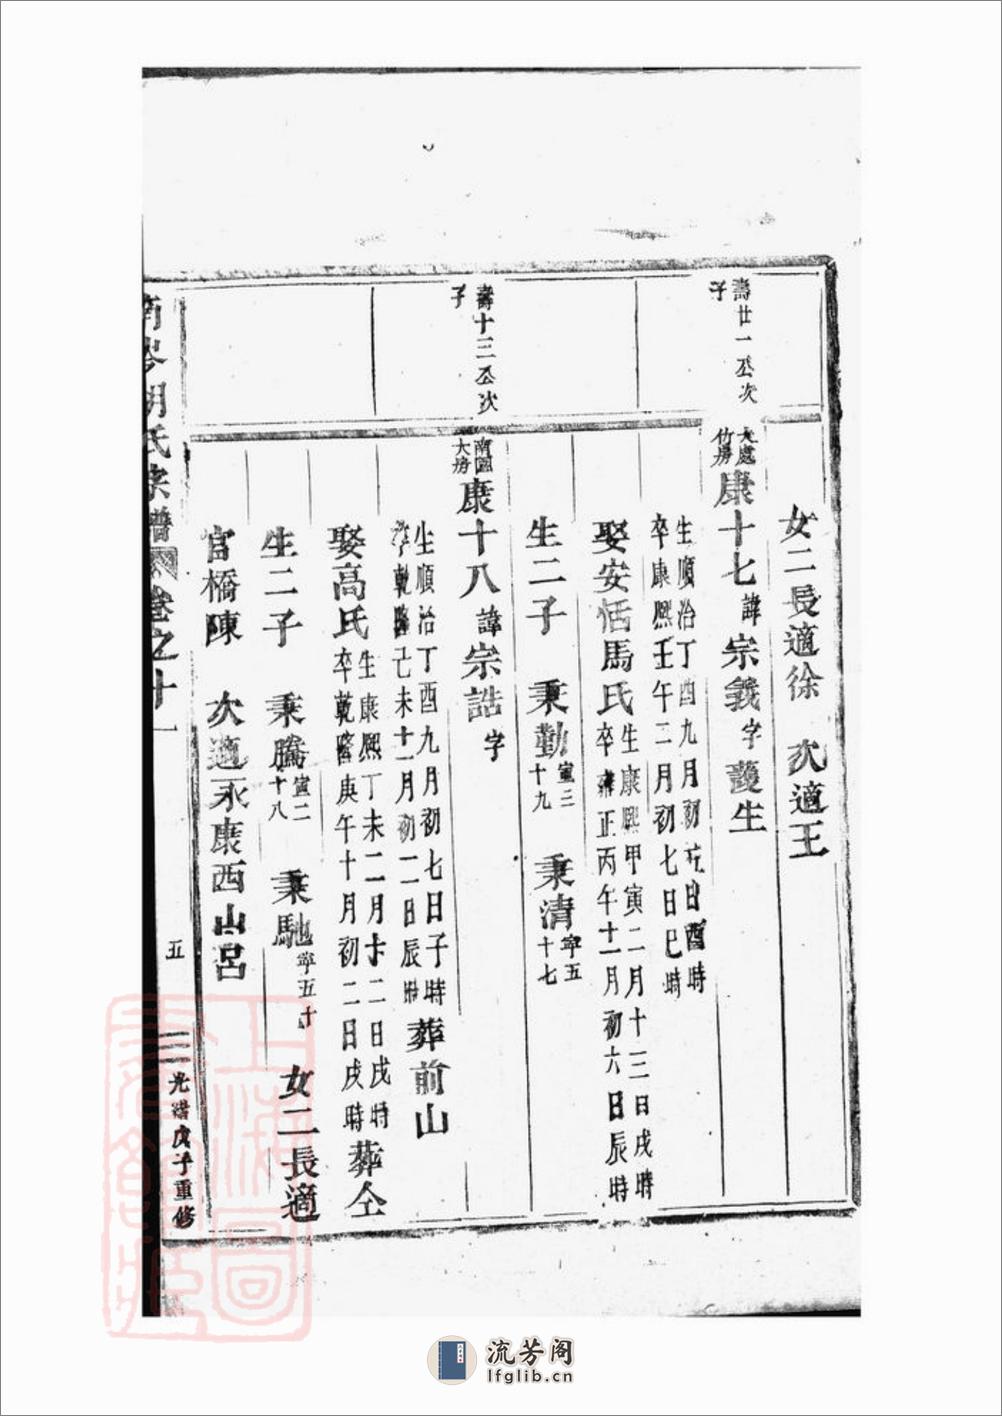 女二長適徐 次適王
壽廿一公次
子
大處
竹房
康十七諱宗義字蔓生
生順治丁酉九月初 日酉時
卒康熙壬午二月初七日巳時
娶安恬馬氏
生康熙甲寅二月十三日戌時
卒雍正丙午十一月初六日辰時
生二子 秉勤寅三十九 秉清寧五十七
壽十三公次
子
南園
大房
康十八諱宗誥字
生順治丁酉九月初七日子時
卒乾隆己未十一月初二日辰時
葬前山
娶高氏
生康熙丁未二月十二日戌時
卒乾隆庚午十月初二日戌時
葬仝
生二子 秉騰寅二十八 秉馳寧五十 女二長適
官橋陳 次適永康西山呂
南岑胡氏宗譜 卷之十一
五
光緒戊子重修
上海圖書館藏
流芳阁
lfglib.cn